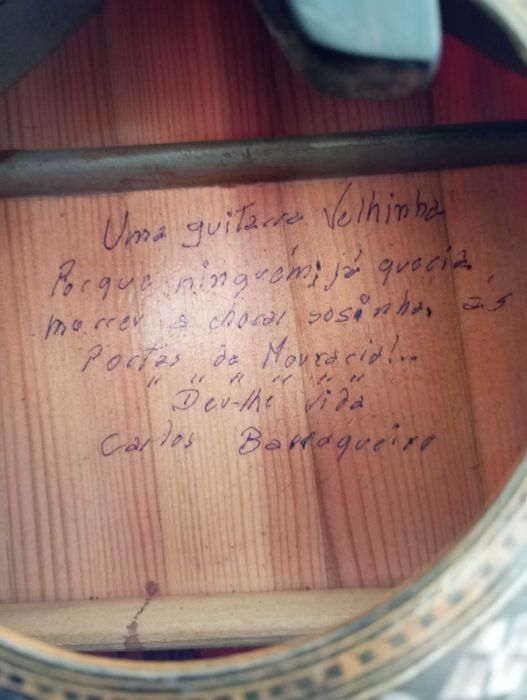 Uma guitarra Velhinha
Porque ninguém já queria
morreu a chorar sosinha, ás
Portas da Mouraria!..
" " " " " "
Deu-lhe vida
Carlos Barraqueiro